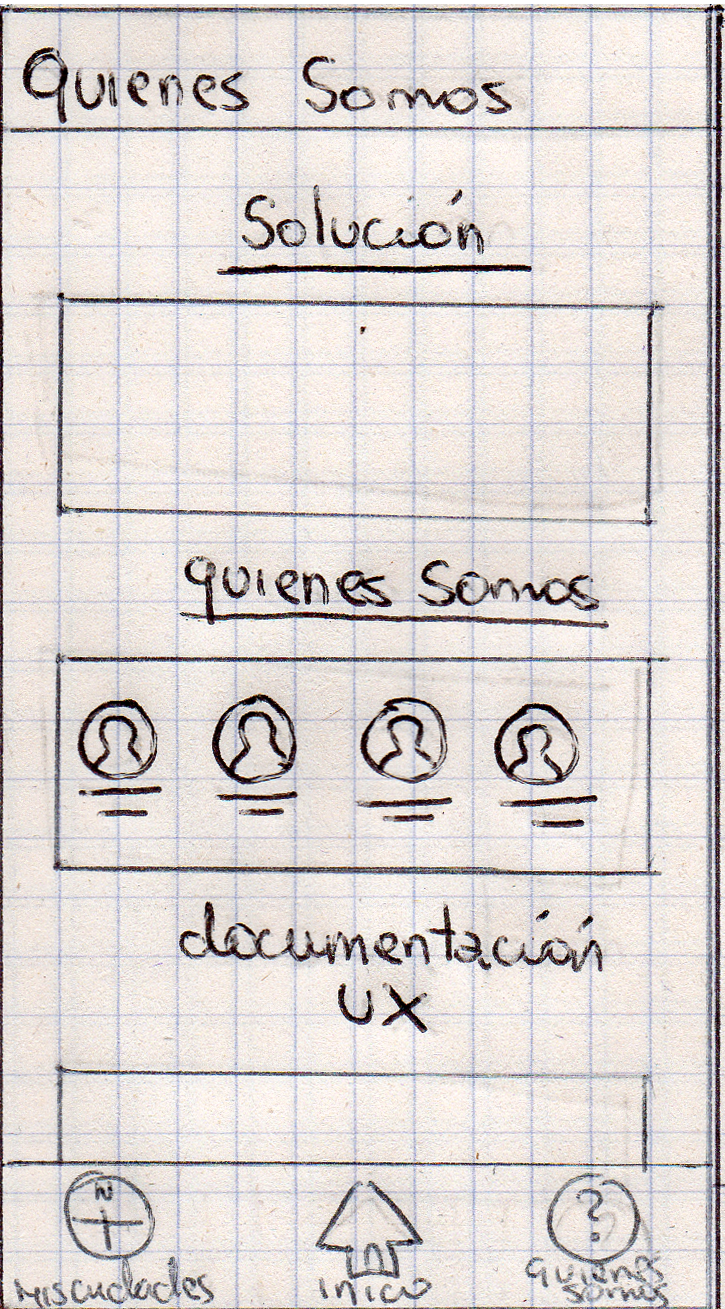 Quienes Somos
Solución
quienes Somos
documentación
UX
N
Mis ciudades
inicio
?
quienes
somos